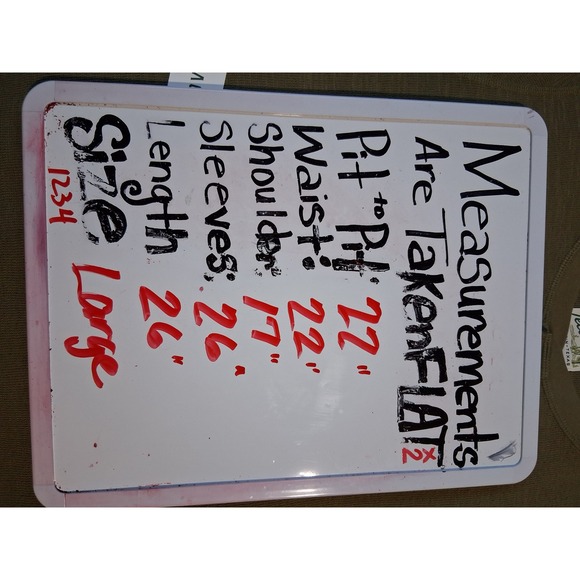 Measurements
Are Taken FLAT x2
Pit to Pit: 22"
Waist: 22"
Shouldr: 17"
Sleeves: 26"
Length 26"
Size. Large
1234